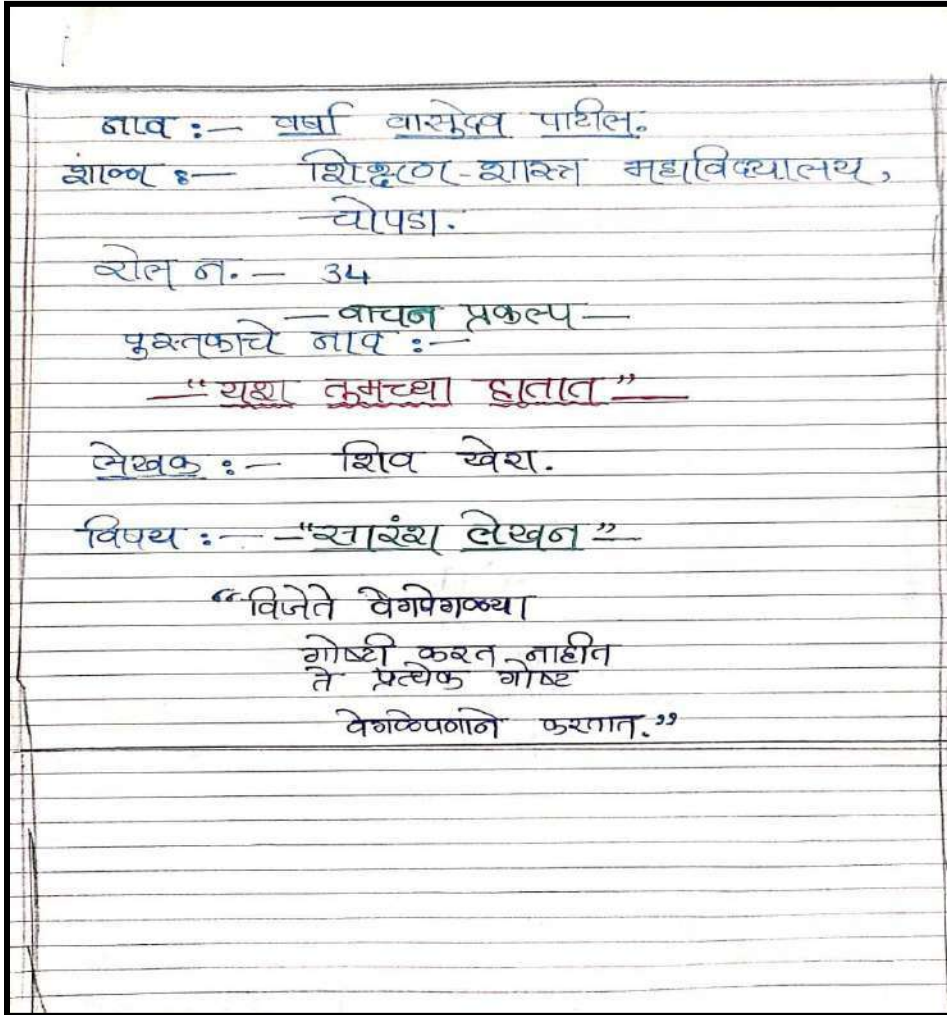 नाव :- वर्षा वासुदेव पाटील.
शिक्षण-शास्त्र महाविद्यालय,
चोपडा.
रोल न. - 34
- वाचन प्रकल्प -
पुस्तकाचे नाव :-
- "यश तुमच्या हातात" -
लेखक :- शिव खेरा.
विषय :- - "सारंश लेखन" -
"विजेते वेगवेगळ्या
गोष्टी करत नाहीत
ते प्रत्येक गोष्ट
वेगळेपणाने करतात."